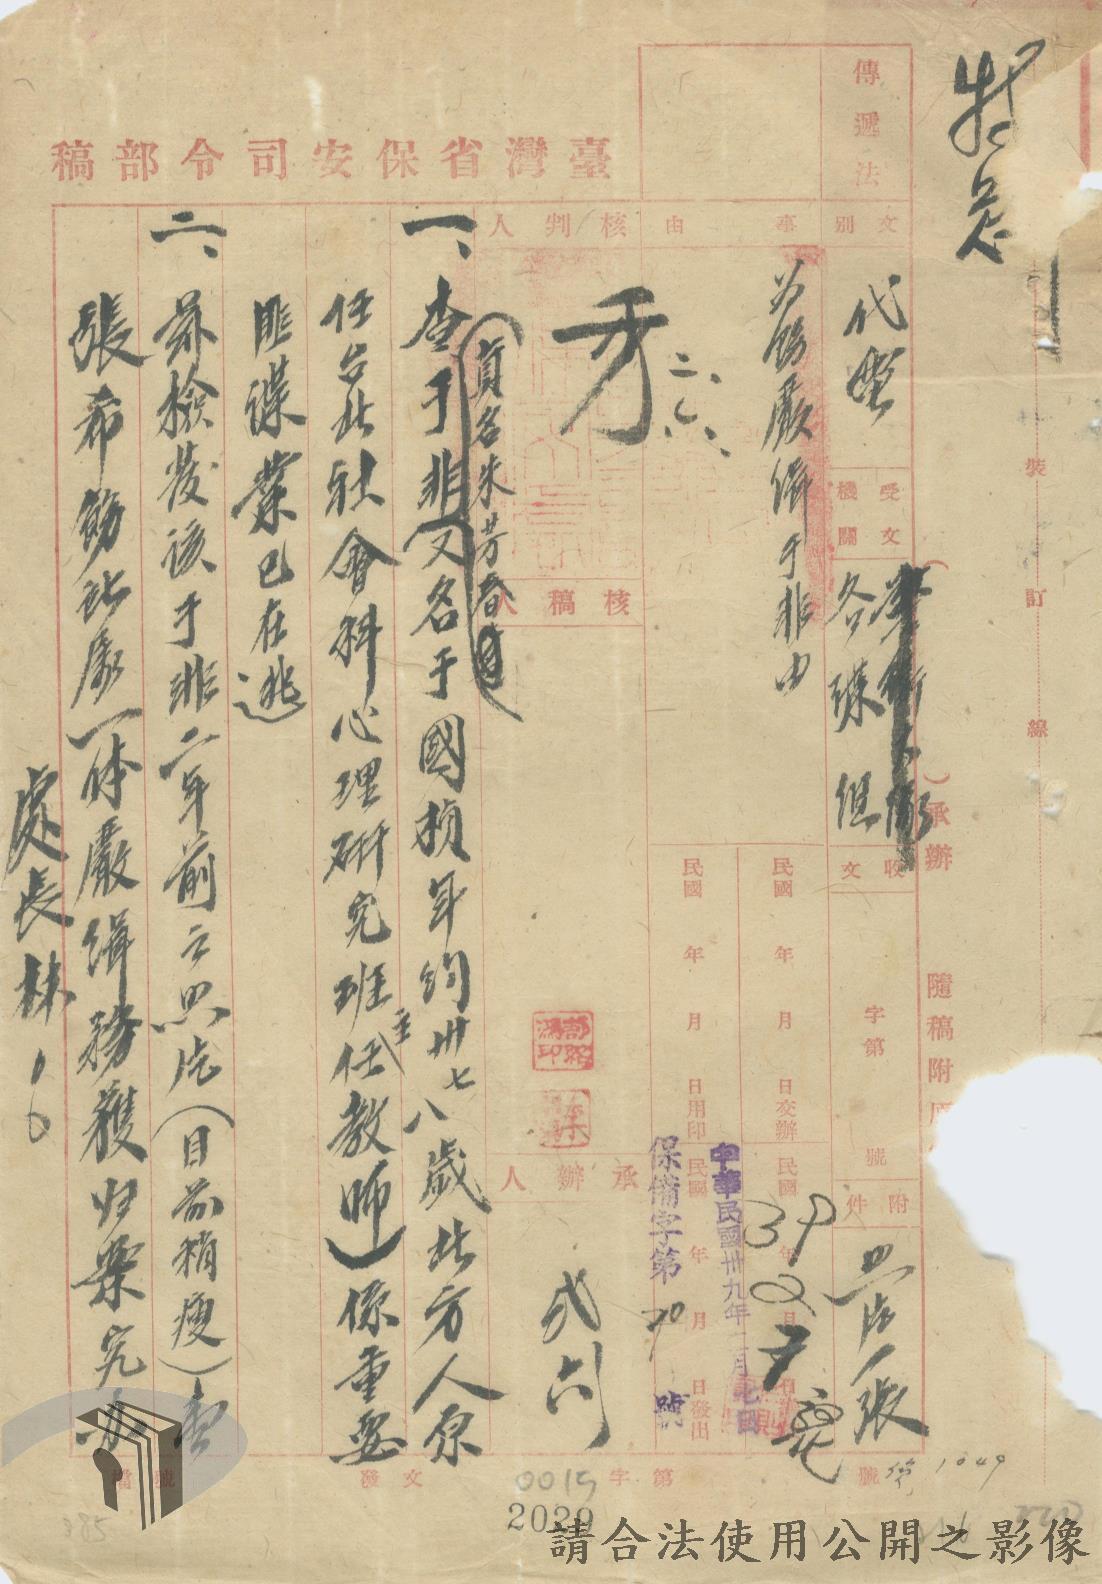 特急
裝訂線
傳遞法
臺灣省保安司令部稿
文別
代電
受文機關
各諜組
(　)承辦
隨稿附
收文
字第　號
附件
照片一張
事由
為飭嚴緝于非由
民國　年　月　日交辦
民國　年　月　日用印
民國　年　月　日
民國　年　月　日發出
39
2
7
中華民國卅九年二月七日
保備字第　號
70
核判人
二、六、
核稿人
承辦人
弍六
一、查于非又名于國楨年約卅七八歲北方人原
(真名朱芳春)
任台北社會科心理研究班主任教師)係重要
匪諜業已在逃
二、茲檢發該于非二年前之照片(目前稍瘦)壹
張希飭所屬一体嚴緝務獲归案究办
處長林
檔號
發文
字第　號
第1049
0019
2029
385
請合法使用公開之影像